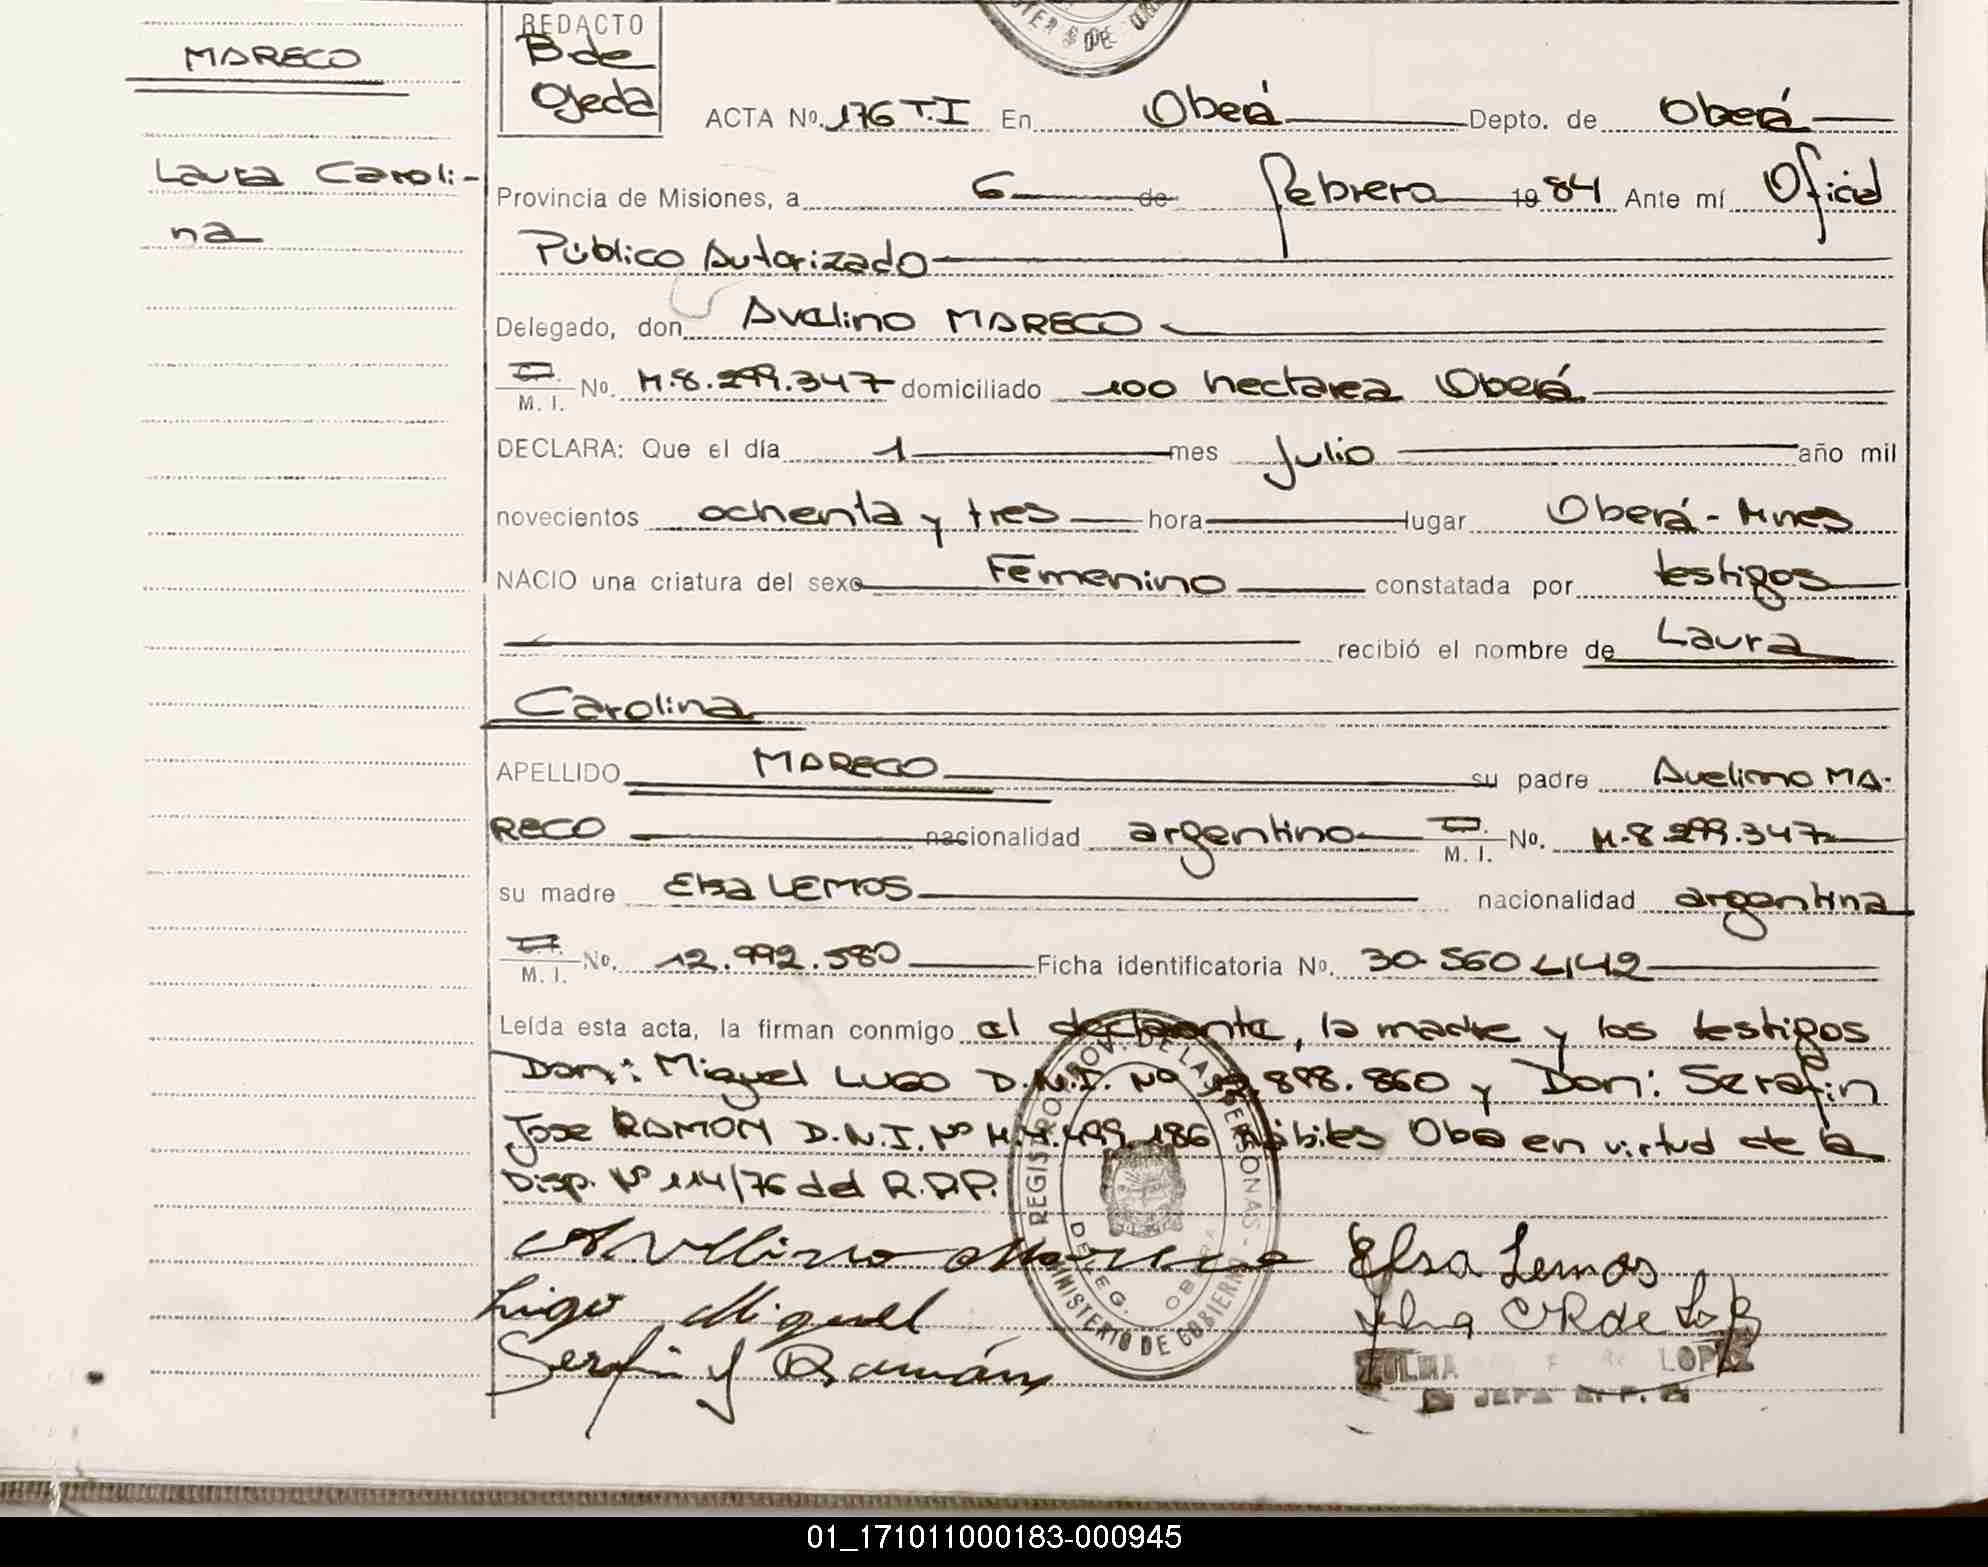 MARECO
Laura Caroli-
na
REDACTO
B de
Ojeda
ACTA No. 176 T.I En Oberá Depto. de Oberá
Provincia de Misiones, a 6 de febrero 1984 Ante mí Oficial
Público Autorizado
Delegado, don Avelino MARECO
M. I. No. M.8.299.347 domiciliado 100 hectarea Oberá
DECLARA: Que el día 1 mes julio año mil
novecientos ochenta y tres hora lugar Oberá - Mnes
NACIO una criatura del sexo Femenino constatada por testigos
recibió el nombre de Laura
Carolina
APELLIDO MARECO su padre Avelino MA-
RECO nacionalidad argentino M. I. No. M.8.299.347
su madre Elsa LEMOS nacionalidad argentina
M. I. No. 12.992.580 Ficha identificatoria No. 30.560.442
Leída esta acta, la firman conmigo el declarante, la madre y los testigos
Don: Miguel LUGO D.N.I. Nº 898.860 y Don: Serafin
Jose RAMON D.N.I. Nº 499.186 Hábiles Oba en virtud de la
Disp. Nº 114/76 del R.P.P.
REGISTRO PROV. DE LAS PERSONAS - MINISTERIO DE GOBIERNO
DELEG. OBERA
Avelino Mareco Elsa Lemos
Lugo Miguel
Serafin J Ramón
ZULMA LOPEZ
JEFA
01_171011000183-000945